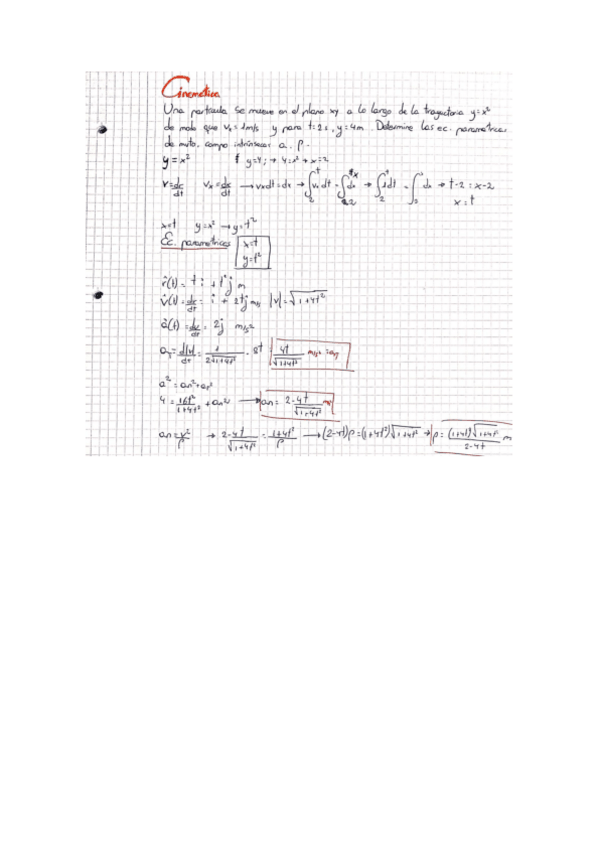 Cinemática
Una partícula se mueve en el plano xy a lo largo de la trayectoria y=x²
de modo que vₓ=1m/s y para t=2s, y=4m. Determine las ec. parametricas
de mvto, comp intrínsecas a, ρ.
y=x² y=4; → 4=x² → x=2
v=dr/dt vₓ=dx/dt → vxdt=dx → ∫₂ᵗ vₓdt = ∫₂ˣ dx → ∫₂ᵗ 1dt = ∫₂ˣ dx → t-2=x-2
x=t
x=t y=x² → y=t²
Ec. parametricas x=t
y=t²
r(t)= t i + t² j m
v(t)=dr/dt = i + 2tj m/s |v|=√1+4t²
a(t)=dv/dt = 2j m/s²
aₜ=d|v|/dt = 1/2√1+4t² · 8t = 4t/√1+4t² m/s² = aₜ
a²=an²+aₜ²
4=16t²/1+4t² + an² → an= 2-4t/√1+4t² m/s²
an=v²/ρ → 2-4t/√1+4t² = 1+4t²/ρ → (2-4t)ρ=(1+4t²)√1+4t² → ρ= (1+4t)√1+4t²/2-4t m